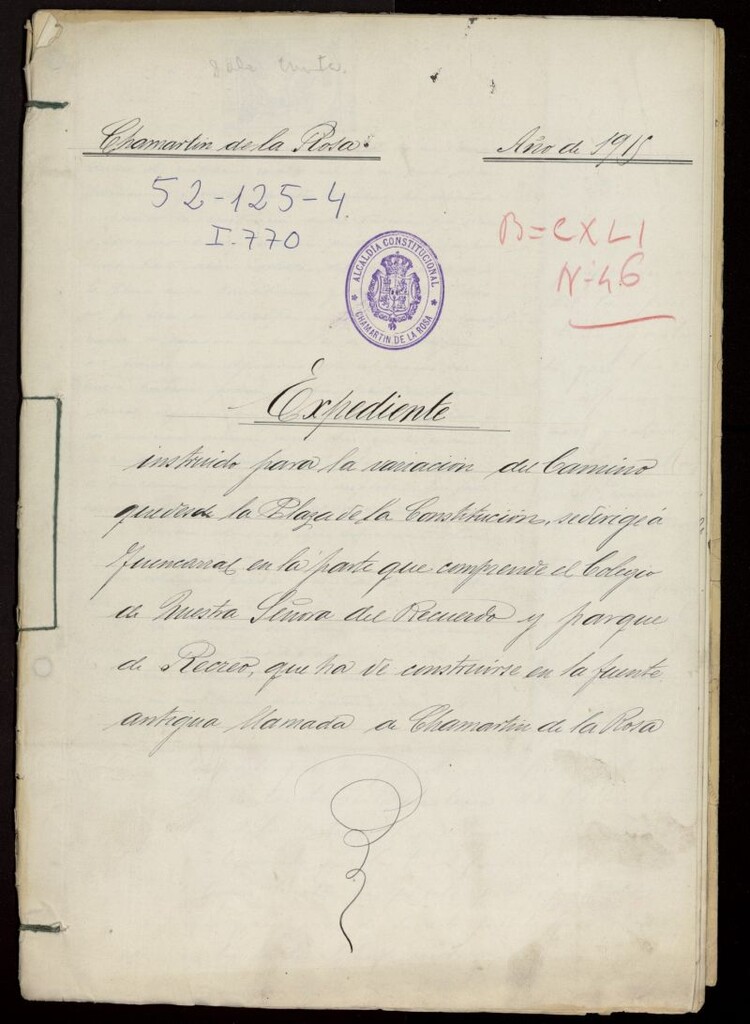 Chamartin de la Rosa
Año de 1915
52-125-4.
I.770
B=CXLI
N-46
ALCALDIA CONSTITUCIONAL
CHAMARTIN DE LA ROSA
Expediente
instruido para la variación del Camino
que desde la Plaza de la Constitución, se dirige á
Fuencarral en la parte que comprende el Colegio
de Nuestra Señora del Recuerdo y parque
de Recreo, que ha de construirse en la fuente
antigua llamada de Chamartin de la Rosa